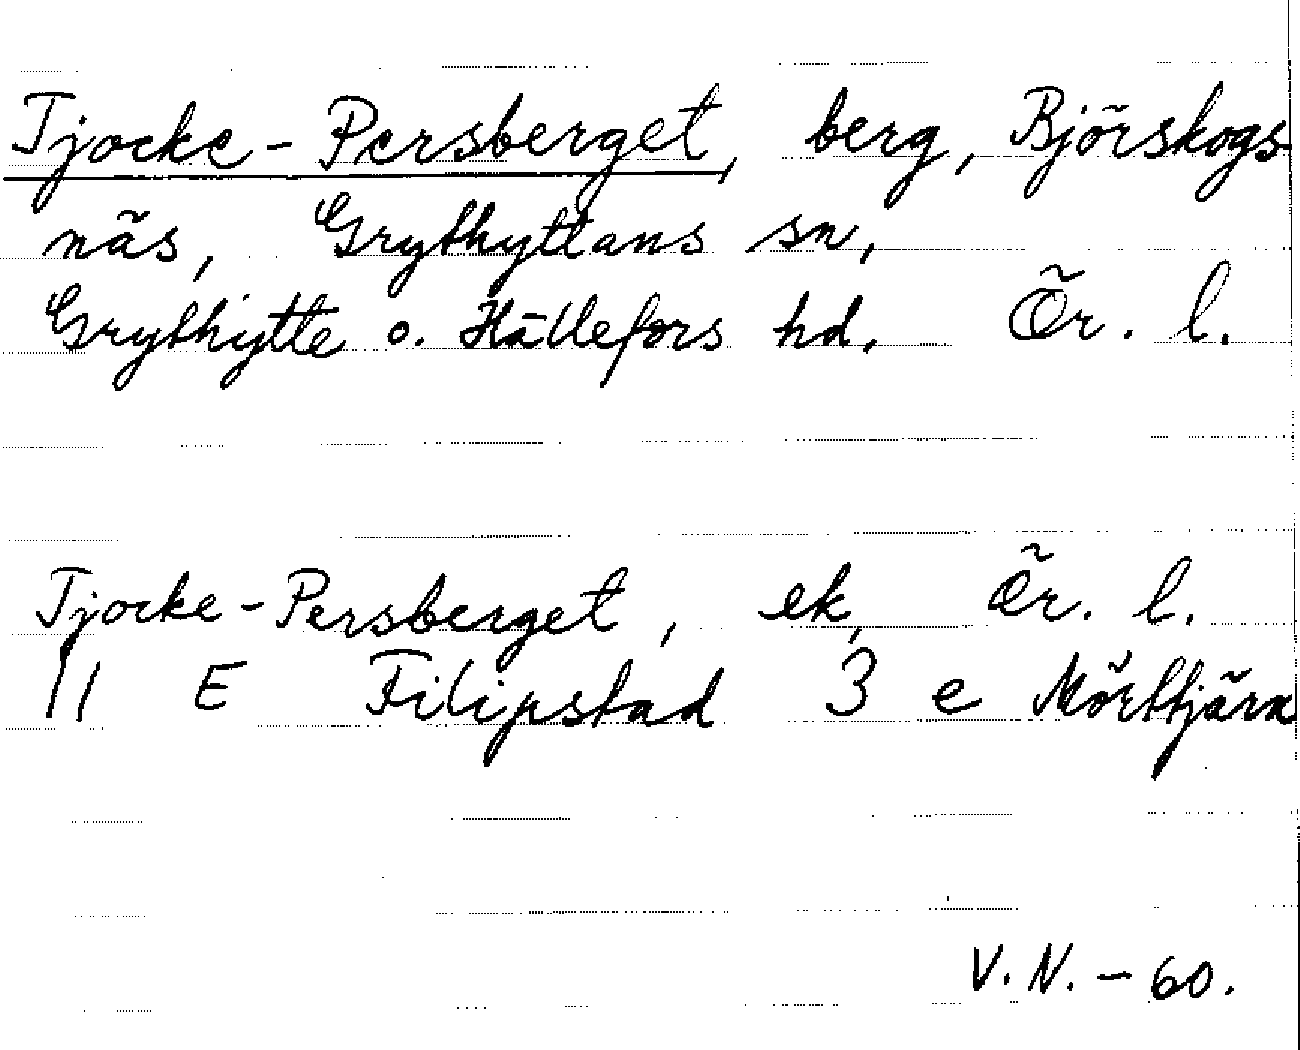 Tjocke-Persberget, berg, Björskogs-
näs, Grythyttans sn,
Grythytte o. Hällefors hd. Ör. l.
Tjocke-Persberget, ek, Ör. l.
11 E Filipstad 3 e Mörttjärn
V. N. - 60.